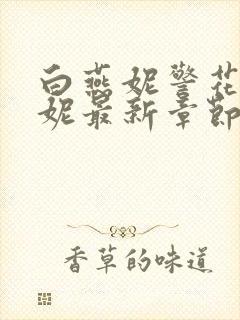 白燕妮警花
妮最新章节
香草的味道